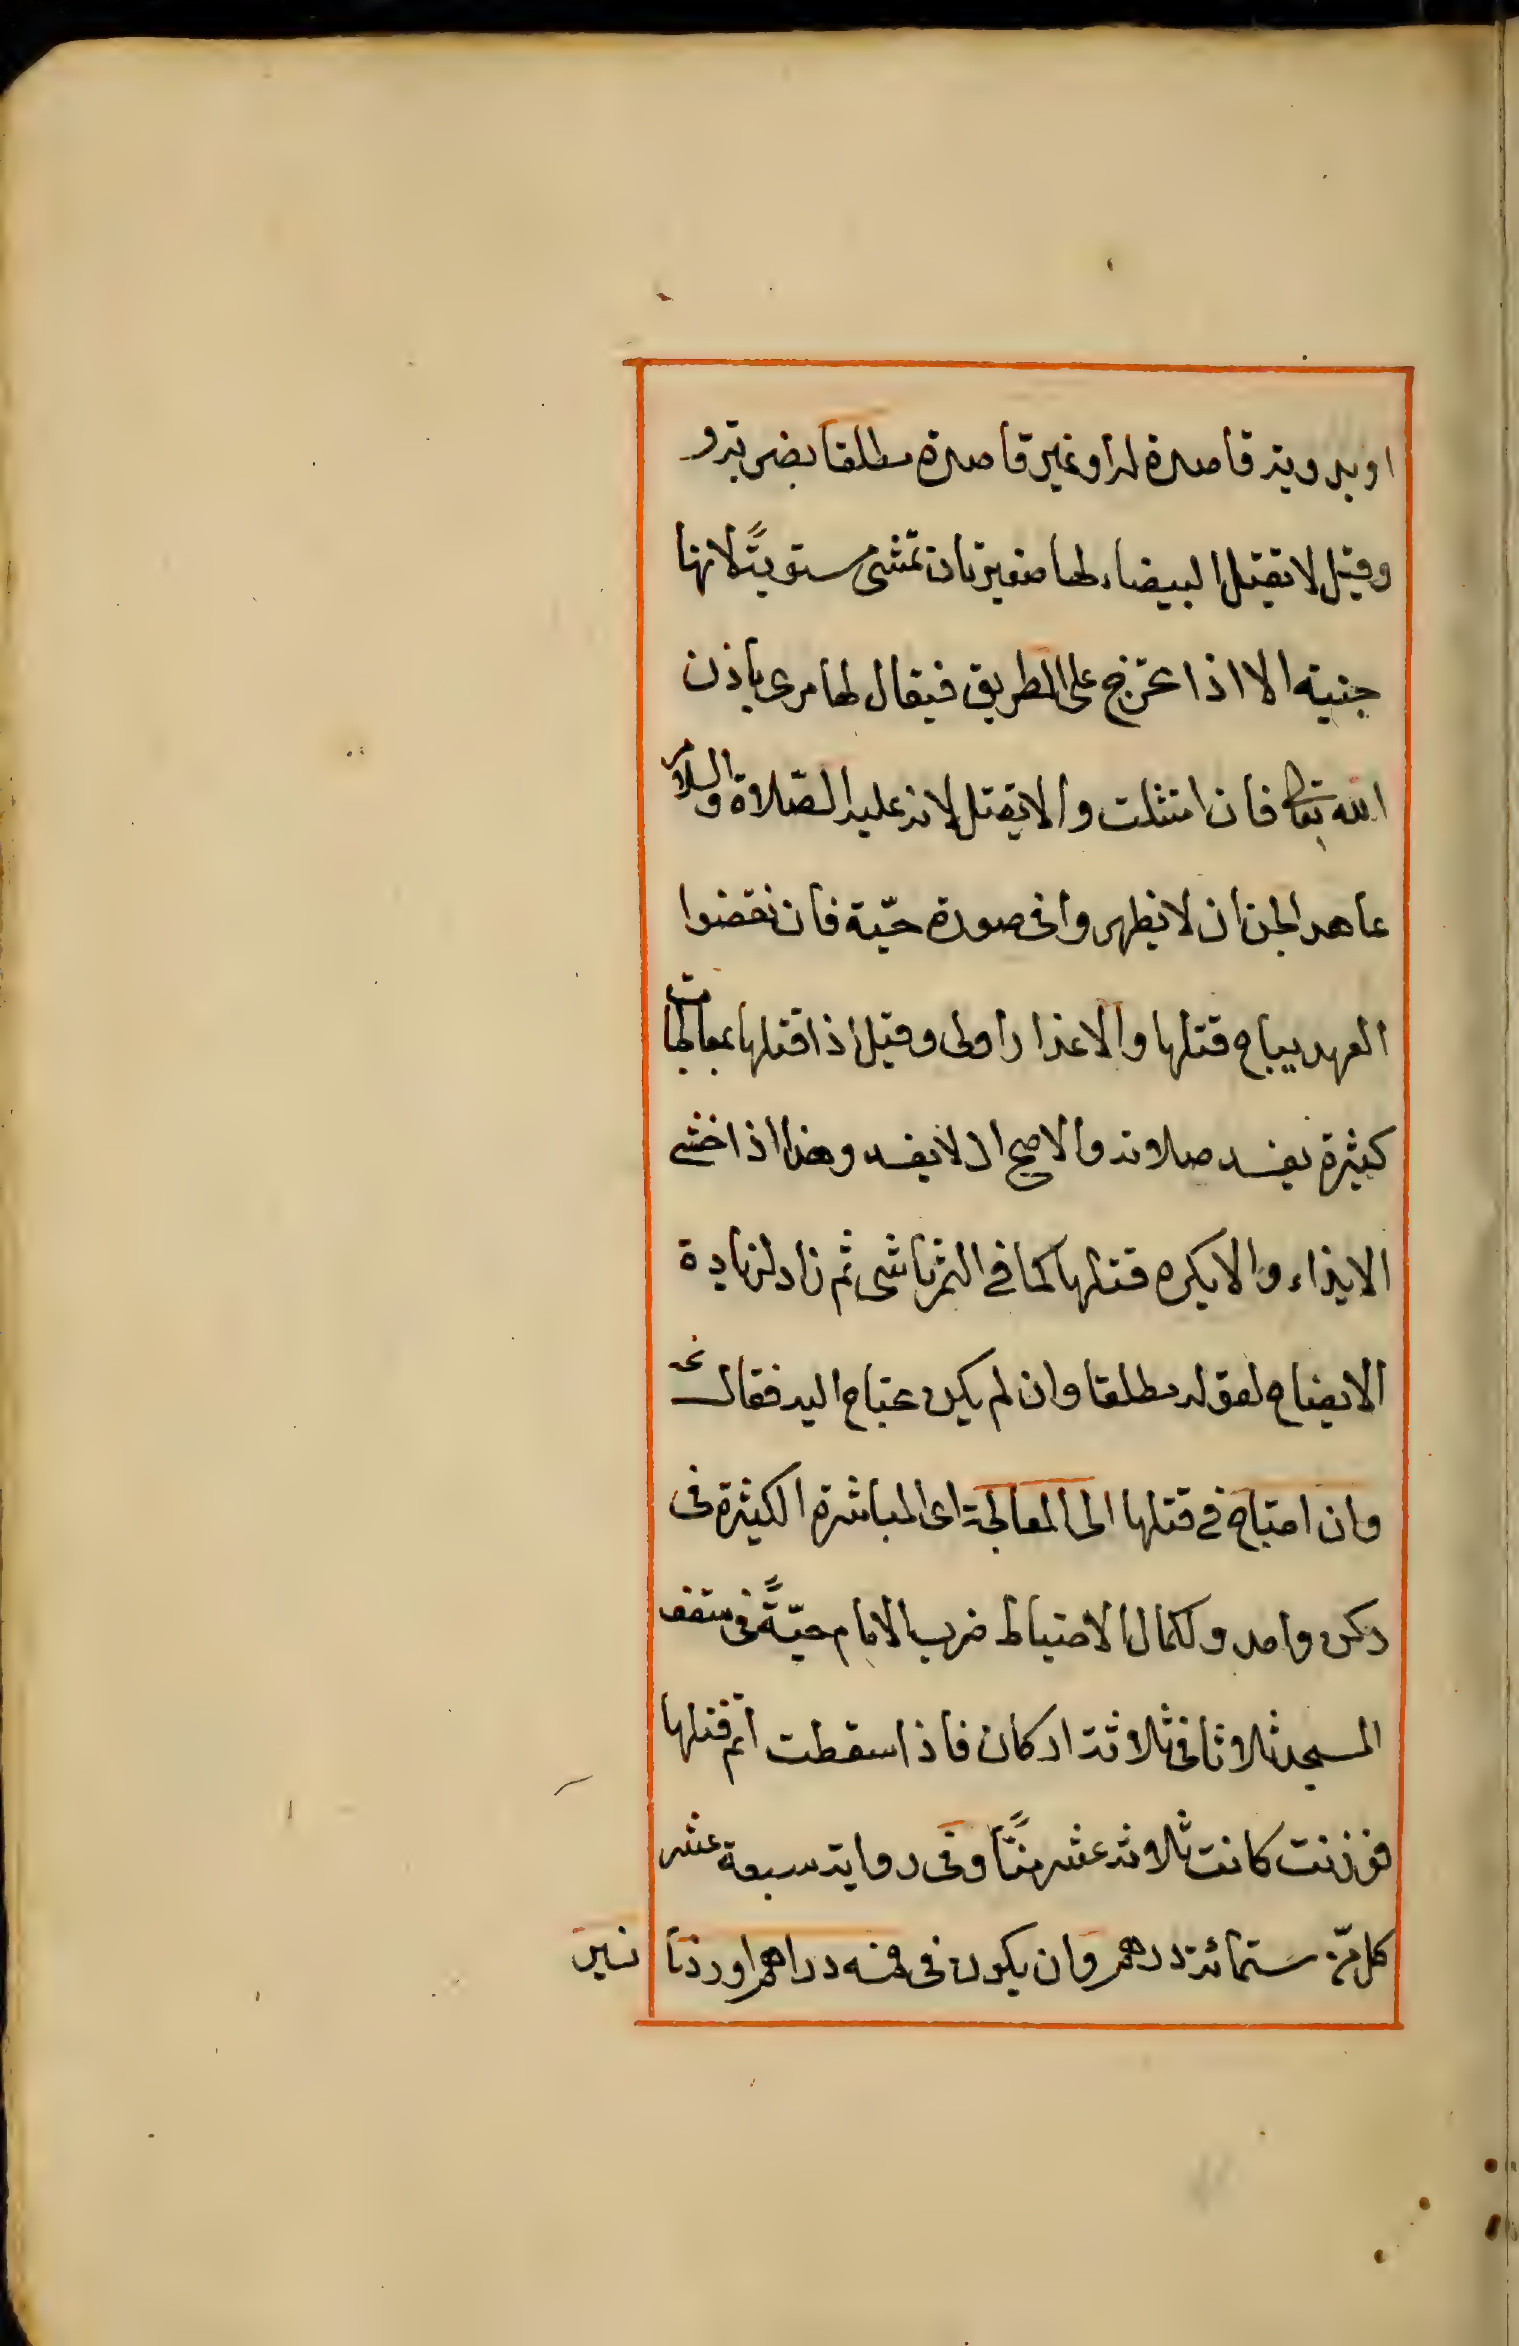 او بدونه قاصدة له او غير قاصدة مطلقا بضربة و
وقيل لا تقتل البيضاء لها ضفيرتان تمشى مستويةً لانها
جنية الا اذا تحرج على الطريق فيقال لها مرى باذن
الله تعالى فان امتثلت والا يقتل لانه عليه الصّلاة والسلام
عاهد الجن ان لا يظهروا فى صورة حيّة فان نقضوا
العهد يباح قتلها والاعذار اولى وقيل اذا قتلها بمعالجات
كثيرة يفسد صلاته والاصح ان لا يفسد وهذا اذا خشى
الايذاء والا يكره قتلها كما فى التمرتاشى ثم زاد لزيادة
الايضاح لقوله مطلقا وان لم يكن يحتاج اليه فقال
وان احتاج فى قتلها الى المعالجة اى المباشرة الكثيرة فى
ركن واحد ولكمال الاحتياط ضرب الامام حيّةً فى سقف
المسجد ثلاثا فى ثلاثة اركان فاذا سقطت اتم قتلها
فوزنت كانت ثلاثة عشر منًّا وفى رواية سبعة عشر
كل منّ ستمائة درهم وان يكون فى فمه دراهم او دنا
نير